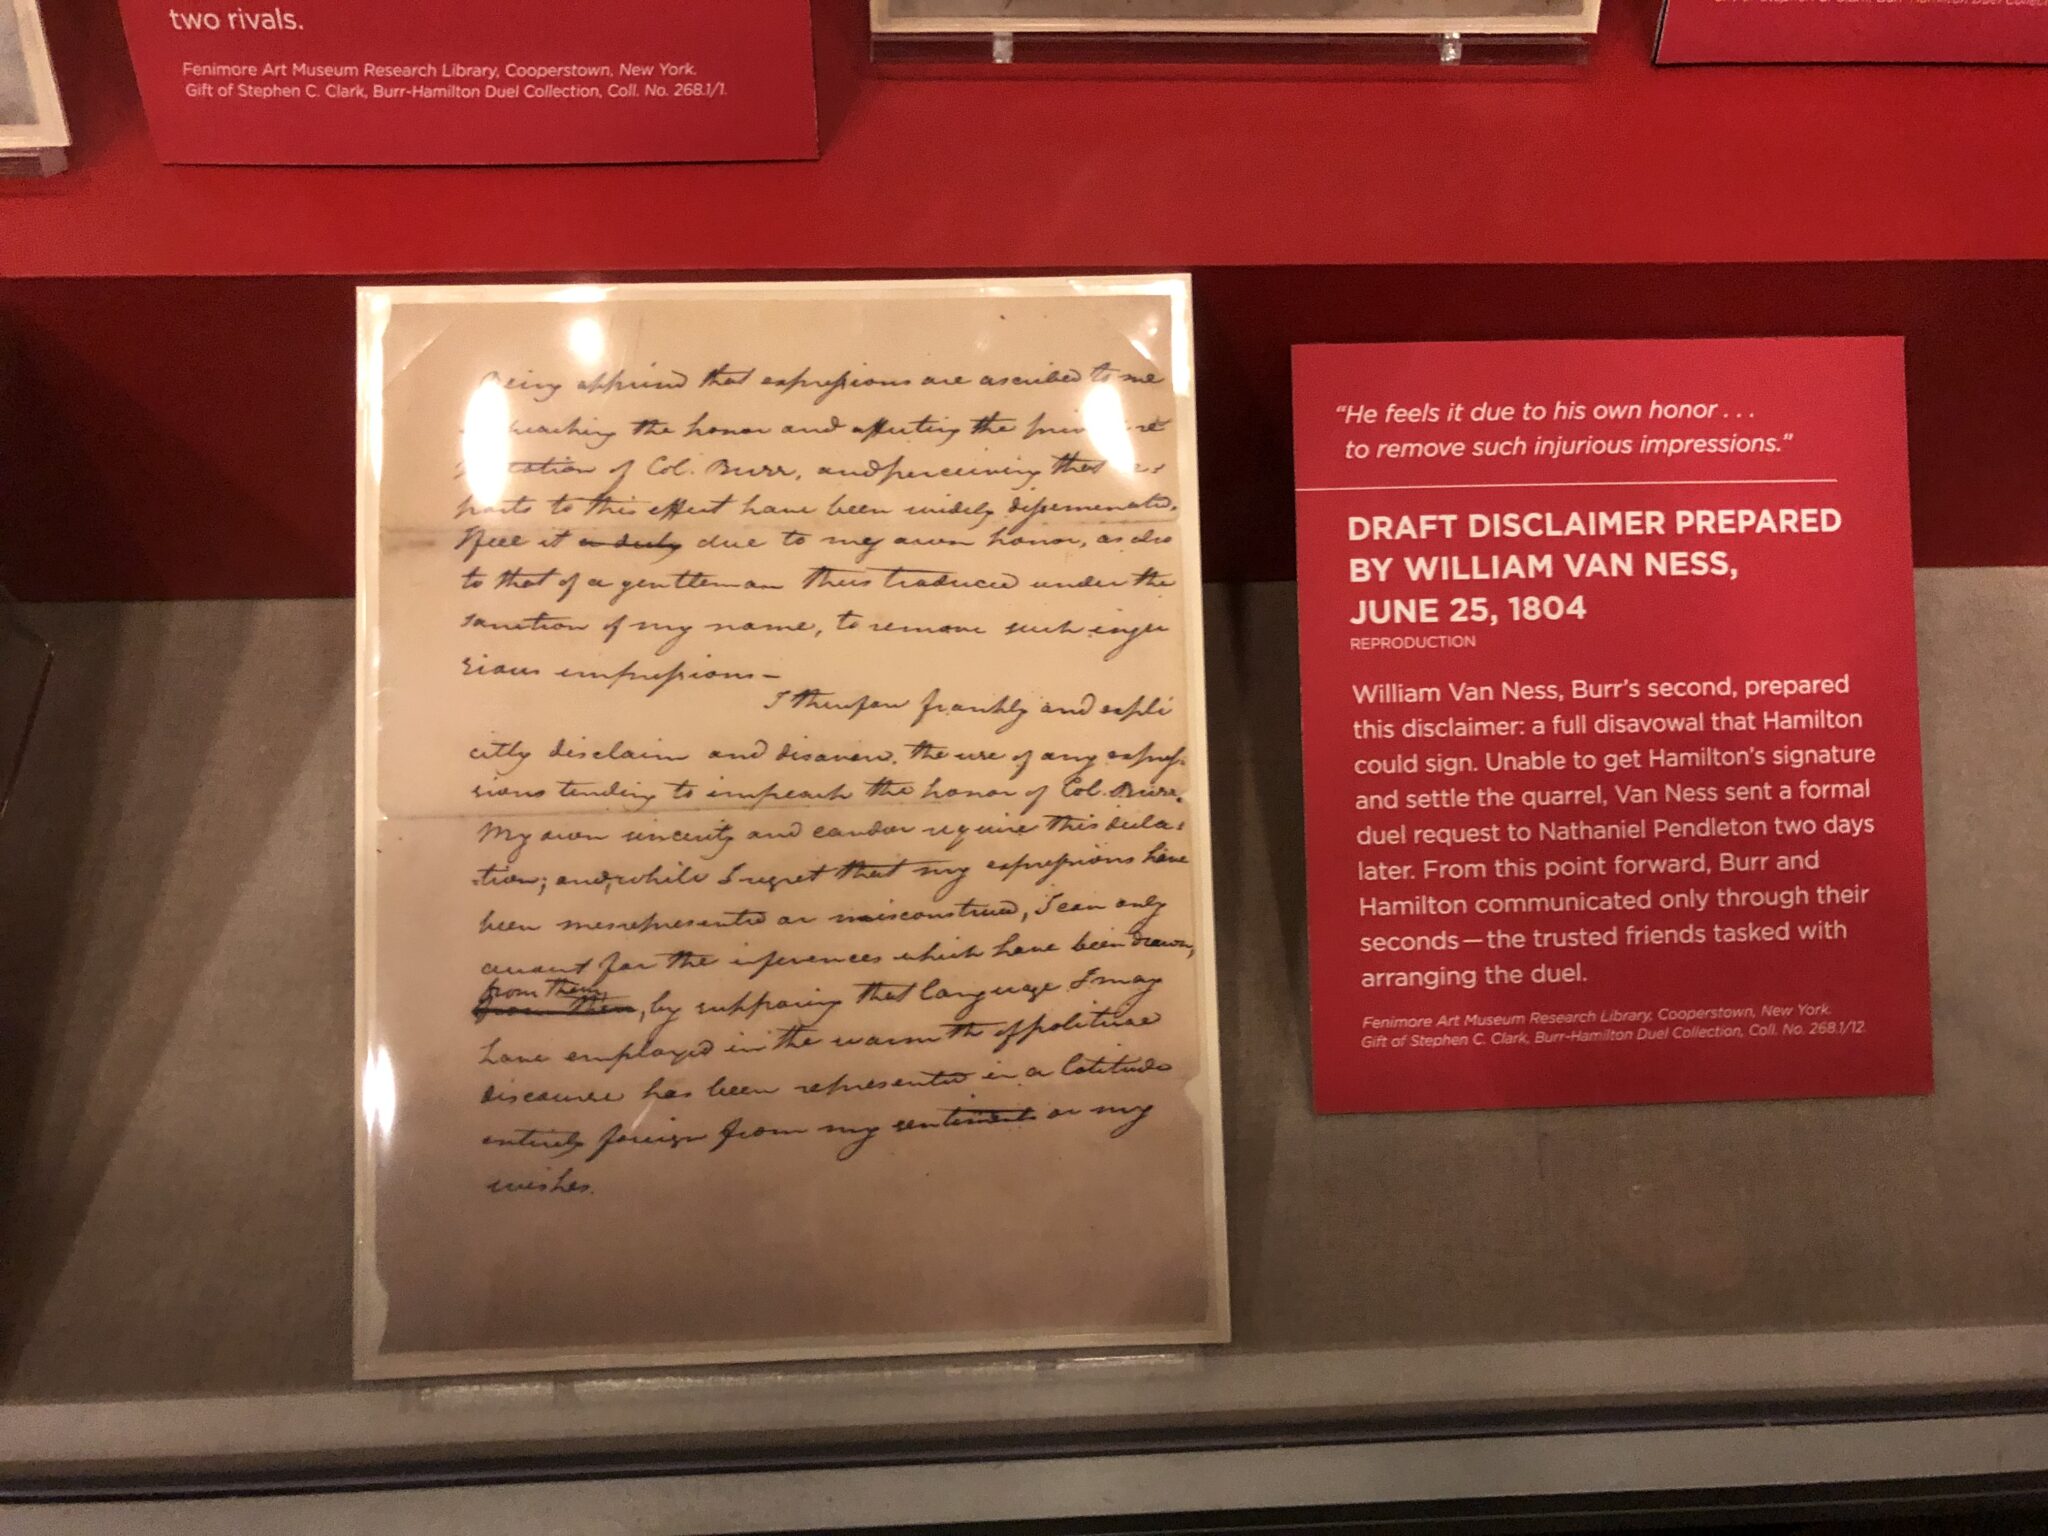 two rivals.
Fenimore Art Museum Research Library, Cooperstown, New York.
Gift of Stephen C. Clark, Burr-Hamilton Duel Collection, Coll. No. 268.1/1.
Being apprised that expressions are ascribed to me
the honor and affecting the
of Col. Burr, and perceiving that re-
ports to this effect have been widely disseminated,
I feel it a duty due to my own honor, as also
to that of a gentleman thus traduced under the
sanction of my name, to remove such inju
rious impressions—
I therefore frankly and expli
citly disclaim and disavow, the use of any expres-
sions tending to impeach the honor of Col. Burr.
My own sincerity and candor require this decla-
tion; and, while I regret that my expressions have
been misrepresented or misconstrued, I can only
account for the inferences which have been drawn,
from them
from them, by supposing that language I may
have employed in the warmth of political
discourse has been represented in a latitude
entirely foreign from my sentiments or my
wishes.
“He feels it due to his own honor . . .
to remove such injurious impressions.”
DRAFT DISCLAIMER PREPARED
BY WILLIAM VAN NESS,
JUNE 25, 1804
REPRODUCTION
William Van Ness, Burr’s second, prepared
this disclaimer: a full disavowal that Hamilton
could sign. Unable to get Hamilton’s signature
and settle the quarrel, Van Ness sent a formal
duel request to Nathaniel Pendleton two days
later. From this point forward, Burr and
Hamilton communicated only through their
seconds—the trusted friends tasked with
arranging the duel.
Fenimore Art Museum Research Library, Cooperstown, New York.
Gift of Stephen C. Clark, Burr-Hamilton Duel Collection, Coll. No. 268.1/12.